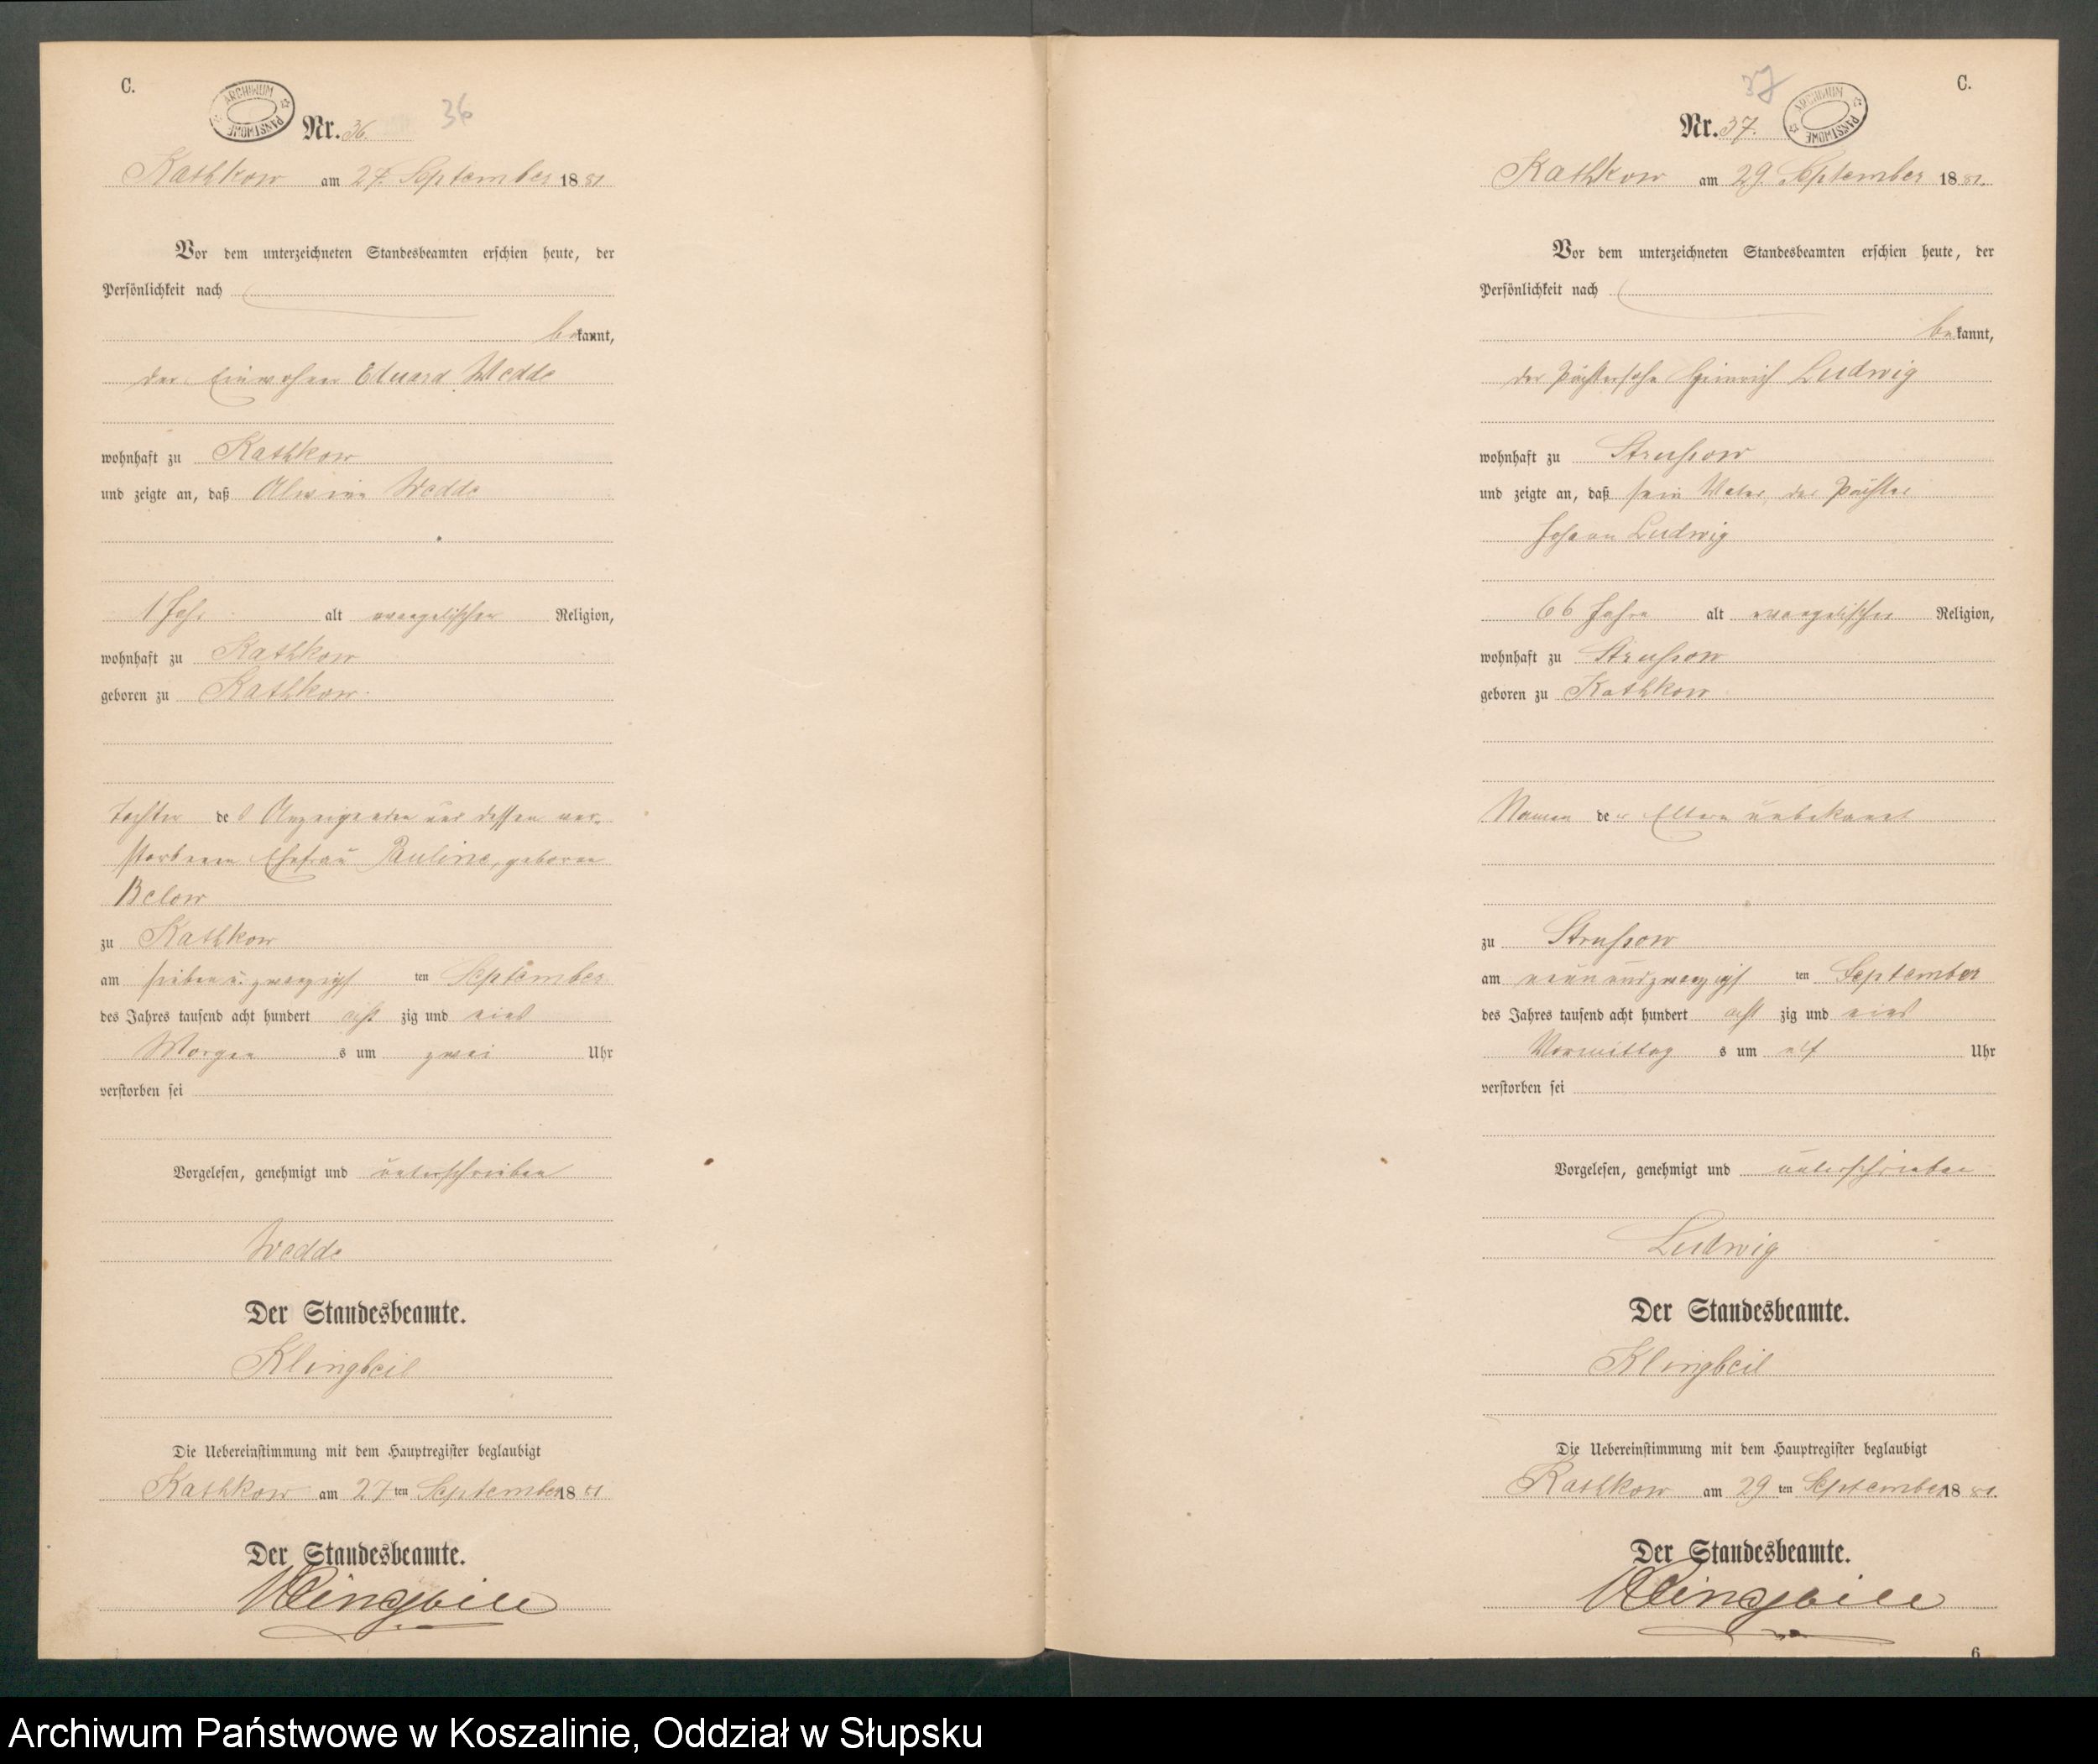 C.
ARCHIWUM PAŃSTWOWE
Nr. 36.
36
Kathkow am 27. September 1881
Vor dem unterzeichneten Standesbeamten erschien heute, der
Persönlichkeit nach
bekannt,
der Einwohner Eduard Wedde
wohnhaft zu Kathkow
und zeigte an, daß Alwine Wedde
1 Jahr alt evangelischer Religion,
wohnhaft zu Kathkow
geboren zu Kathkow.
Tochter des Anzeigenden und dessen ver-
storbenen Ehefrau Pauline, geborene
Below
zu Kathkow
am sieben u. zwanzigsten September
des Jahres tausend acht hundert achtzig und eins
Morgens um zwei Uhr
verstorben sei
Vorgelesen, genehmigt und unterschrieben
Wedde
Der Standesbeamte.
Klingbeil
Die Uebereinstimmung mit dem Hauptregister beglaubigt
Kathkow am 27ten September 1881
Der Standesbeamte.
Klingbeil
37
C.
ARCHIWUM PAŃSTWOWE
Nr. 37.
Kathkow am 29. September 1881.
Vor dem unterzeichneten Standesbeamten erschien heute, der
Persönlichkeit nach
bekannt,
der Pächtersohn Heinrich Ludwig
wohnhaft zu Strussow
und zeigte an, daß sein Vater, der Pächter
Johann Ludwig
66 Jahre alt evangelischer Religion,
wohnhaft zu Strussow
geboren zu Kathkow
Namen der Eltern unbekannt
zu Strussow
am neunundzwanzigsten September
des Jahres tausend acht hundert achtzig und eins
Vormittags um elf Uhr
verstorben sei
Vorgelesen, genehmigt und unterschrieben
Ludwig
Der Standesbeamte.
Klingbeil
Die Uebereinstimmung mit dem Hauptregister beglaubigt
Kathkow am 29ten September 1881.
Der Standesbeamte.
Klingbeil
6
Archiwum Państwowe w Koszalinie, Oddział w Słupsku